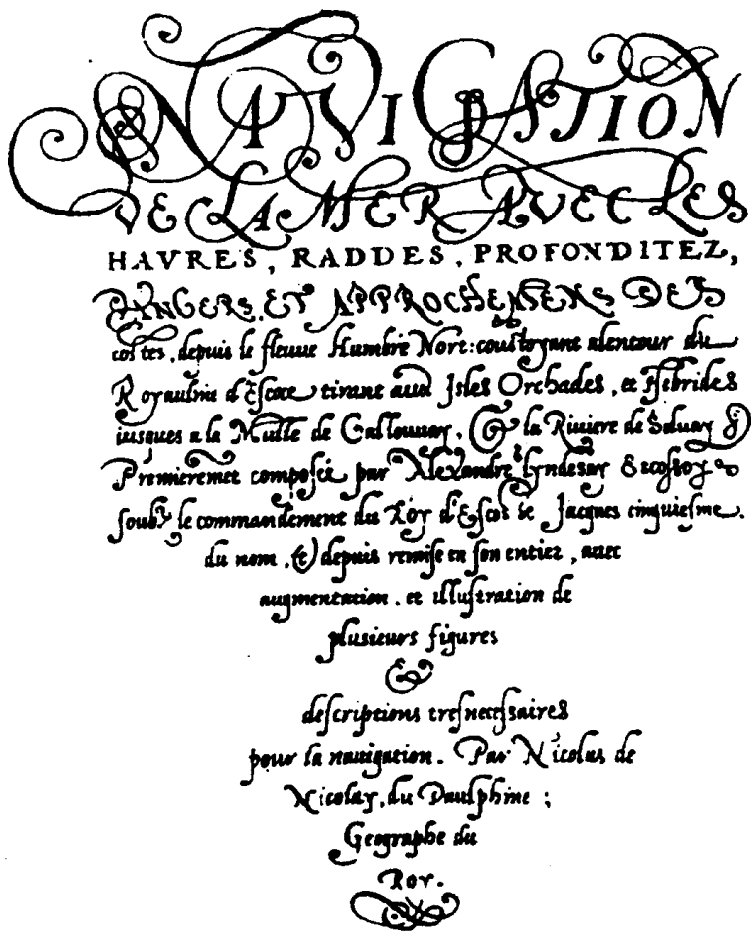 NAVIGATION
DE LA MER AVEC LES
HAVRES, RADDES, PROFONDITEZ,
DANGERS, ET APPROCHEMENS DES
costes, depuis le fleuve Humbre Nort: coustoyant alentour du
Royaulme d'Escoce tirant aux Isles Orchades, et Hebrides
iusques a la Mulle de Gallouuay, & la Riviere de Soluay &
Premieremēt composée par Alexandre Lyndesay Escossoys
soubz le commandement du Roy d'Escosse Jacques cinquiesme.
du nom, et depuis remise en son entier, auec
augmentation. et illustration de
plusieurs figures
&
descriptions tresnecessaires
pour la nauigation. Par Nicolas de
Nicolay, du Daulphine;
Geographe du
Roy.